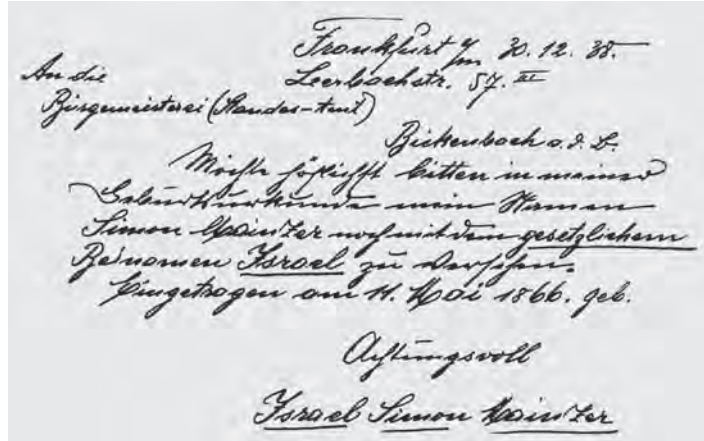 Frankfurt a/m 30.12.38.
Leerbachstr. 57. III
An die
Bürgermeisterei (Standes-Amt)
Bickenbach a. d. B.
Möchte höflichst bitten in meiner
Geburtsurkunde mein Namen
Simon Mainzer noch mit dem gesetzlichem
Beinamen Israel zu versehen.
Eingetragen am 14. Mai 1866. geb.
Achtungsvoll
Israel Simon Mainzer